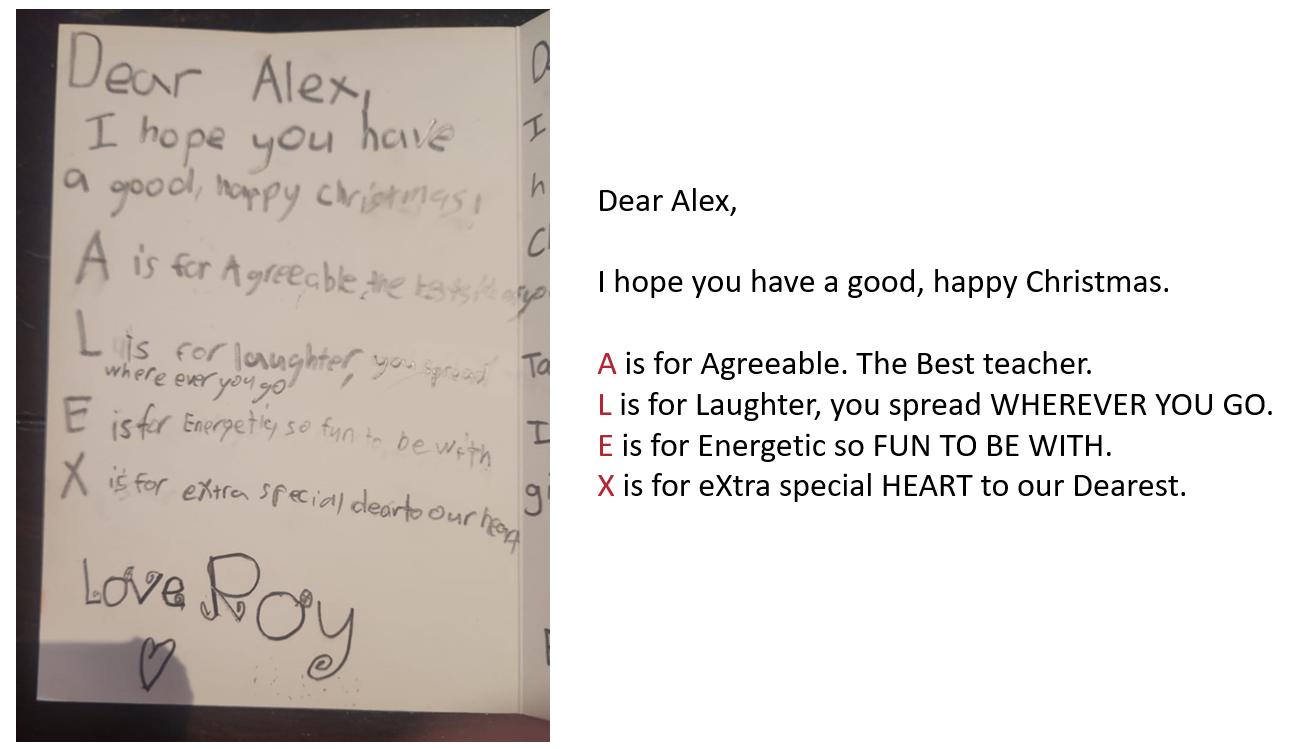 Dear Alex,
I hope you have
a good, happy christmas!
A is for Agreeable, the
L is for laughter, you spread
where ever you go
E is for Energetic, so fun to be with
X is for eXtra special dear to our heart
Love Roy
D
I
h
C
yo
Ta
I
gi
Dear Alex,
I hope you have a good, happy Christmas.
A is for Agreeable. The Best teacher.
L is for Laughter, you spread WHEREVER YOU GO.
E is for Energetic so FUN TO BE WITH.
X is for eXtra special HEART to our Dearest.